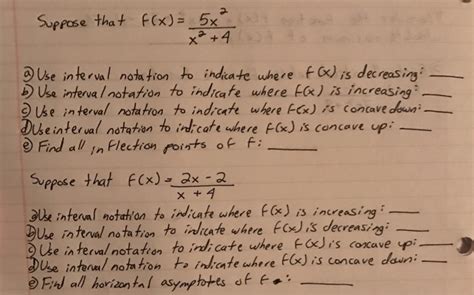 Suppose that f(x) = 5x² / x² + 4
a) Use interval notation to indicate where f(x) is decreasing: ___
b) Use interval notation to indicate where f(x) is increasing: ___
c) Use interval notation to indicate where f(x) is concave down: ___
d) Use interval notation to indicate where f(x) is concave up: ___
e) Find all inflection points of f: ___
Suppose that f(x) = 2x - 2 / x + 4
a) Use interval notation to indicate where f(x) is increasing: ___
b) Use interval notation to indicate where f(x) is decreasing: ___
c) Use interval notation to indicate where f(x) is concave up: ___
d) Use interval notation to indicate where f(x) is concave down: ___
e) Find all horizontal asymptotes of f : ___